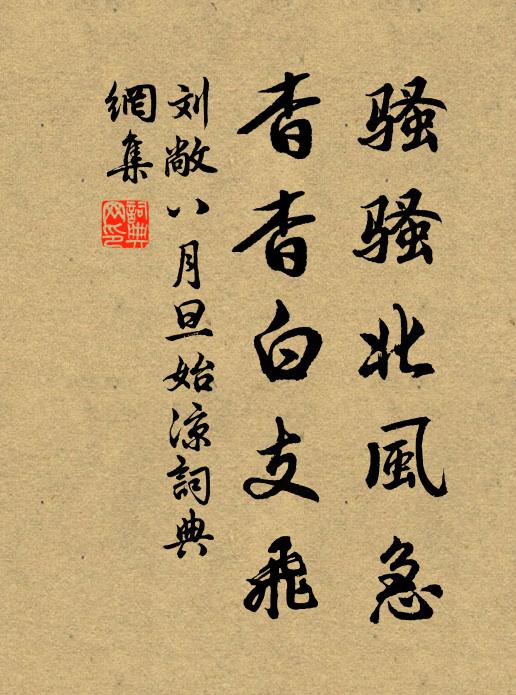 骚骚北風急
杳杳白支飛
刘敞八月旦始涼詞典
網集
詞典
网印